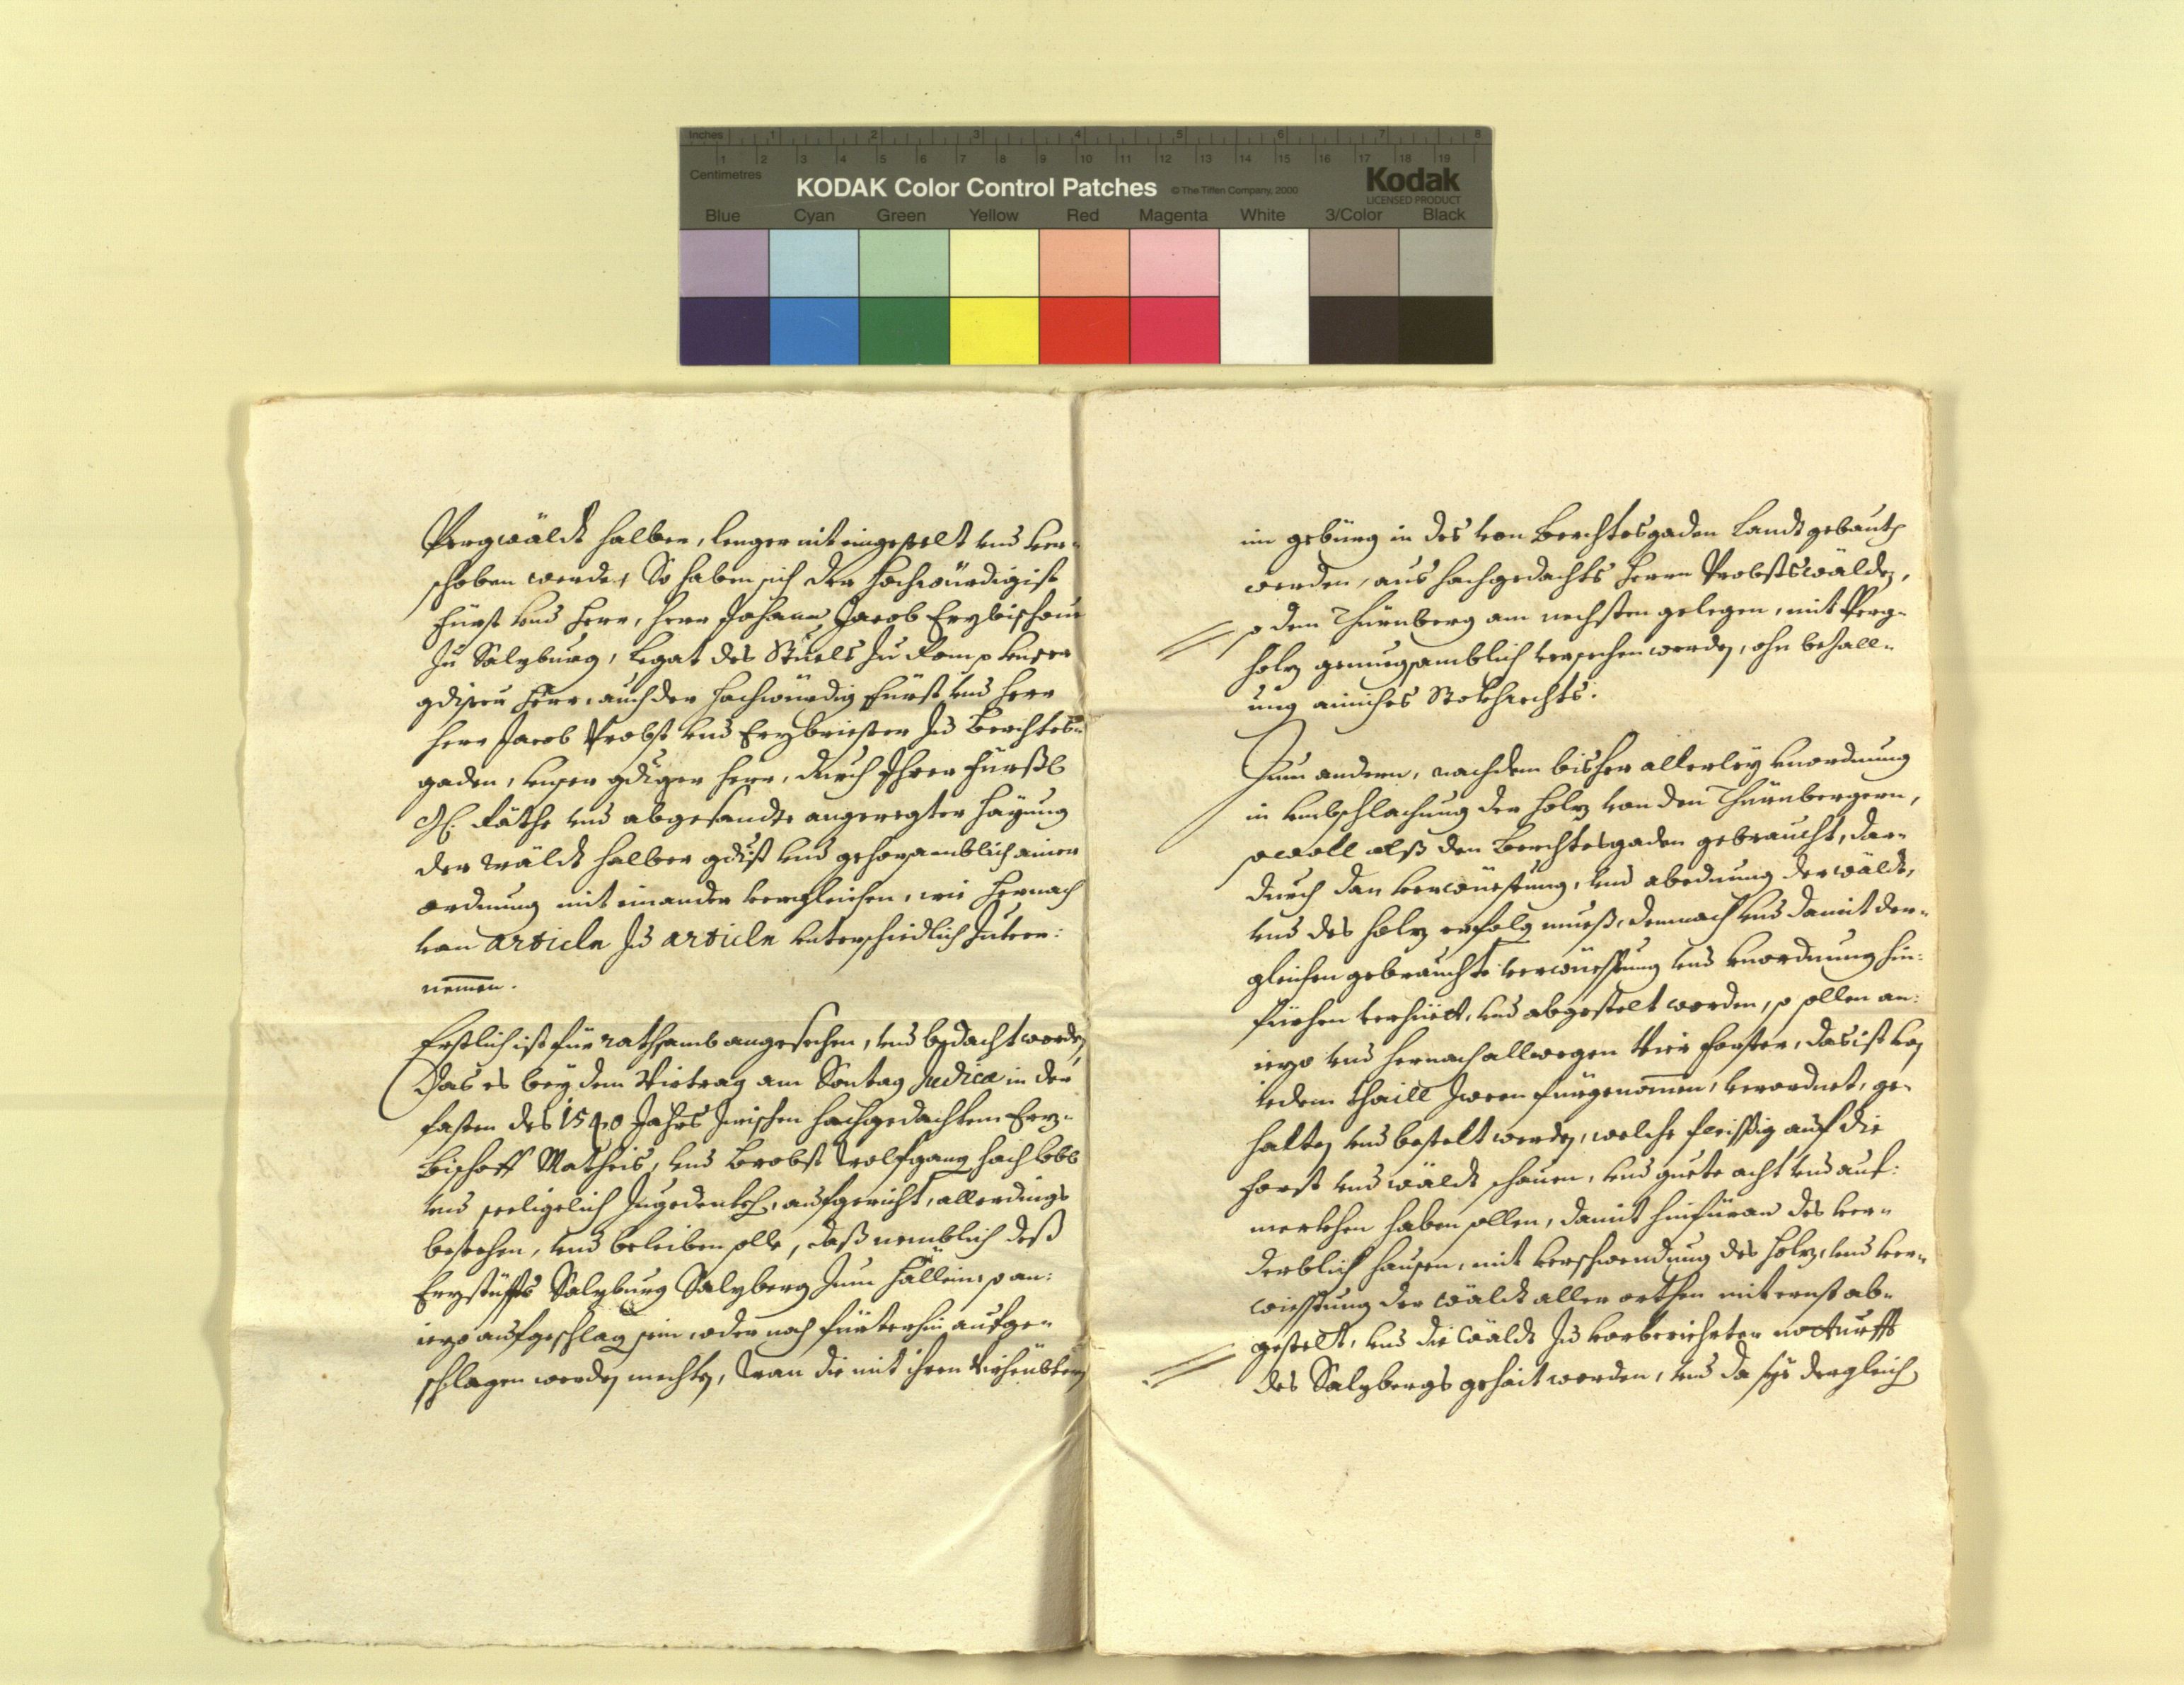 Inches 1 2 3 4 5 6 7 8
1 2 3 4 5 6 7 8 9 10 11 12 13 14 15 16 17 18 19
Centimetres
KODAK Color Control Patches © The Tiffen Company, 2000 Kodak
LICENSED PRODUCT
Blue Cyan Green Yellow Red Magenta White 3/Color Black
Pergwäldt halben, lenger nit eingestelt vnd ver-
schoben werde, So haben sich der Hochwürdigist
Fürst vnd Herr, Herr Johann Jacob Erzbischoue
Zu Salzburg, Legat des Stuels Zu Rom p vnser
gdister Herr, auch der Hochwürdig Fürst vnd Herr
Herr Jacob Probst vnd Erzbriester Zu Berchtes-
gaden, vnser gdiger Herr, durch Ihrer Fürstl
Gl. Räthe vnd abgesandte angeregter Hayung
der Wäldt halben gdist vnd gehorsamblich ainer
ordnung mit einander verglichen, wie hernach
von Articln Zu Articln vnterschiedlich Zuver:
nemen.
Erstlich ist für rathsamb angesehen, vnd bedacht worden
Das es bey dem Vertrag am Sontag Judica in der
fasten des 1540 Jahrs Zwischen hochgedachtem Erz-
Bischoff Matheis, vnd Brobst Wolfgang hochlobl
vnd seeligelich Zugedenkh, aufgericht, allerdings
bestehen, vnd beleiben solle, daß nemblich deß
Erzstüffts Salzburg Salzberg Zum Hällein, so an:
iezo aufgeschlagen sein, oder noch fürterhin aufge-
schlagen werden mechten, Wan die mit ihren
im gebürg in des von Berchtesgaden Landt gebauth
werden, aus hochgedachts Herrn Probsts wälden,
so dem Thürnberg am nechsten gelegen, mit Perg-
holz genuegsamblich versehen werden, ohn behall-
ung ainiches Stokhrechts.
Zum andern, nachdem bisher allerley vnordnung
in verschlachung der holz von den Thürnbergern,
sowoll alß den Berchtesgaden gebraucht, dar-
durch dan verwüestung, vnd abödnung der wäldt,
vnd des holz erfolgen mueß, demnach vnd damit der-
gleichen gebrauchte verwüestung vnd vnordnung hin-
fürhen verhüet, vnd abgestelt werden, so sollen an:
iezo vnd hernach allwegen Vier Forster, das ist von
iedem thaill Zween fürgenommen, verordnet, ge-
halten vnd bestelt werden, welche fleissig auf die
Forst vnd wäldt schauen, vnd guete acht vnd auf:
merkhen haben sollen, damit hinfüran des ver-
derblich hausen, mit verschwendung des holz, vnd ver-
wiestung der wäldt aller orthen mit ernst ab-
gestelt, vnd die Wäldt Zu vorberiehrter notturfft
des Salzbergs gehait werden, vnd da sye dergleich